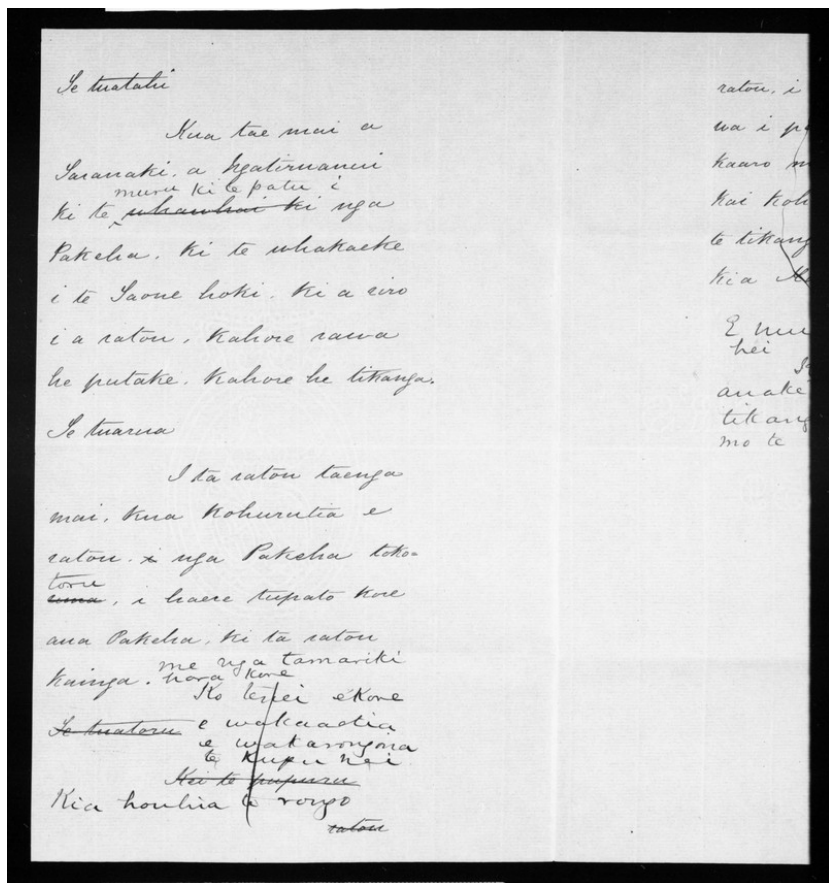 Te tuatahi
Kua tae mai a
Taranaki. a Ngatiruanui
muru ki te patu i
ki te whawhai ki nga
Pakeha. ki te whakaeke
i te Taone hoki. ki a riro
i a ratou, kahore rawa
he putake. kahore he tikanga.
Te tuarua
I ta ratou taenga
mai. kua kohurutia e
ratou. i nga Pakeha toko-
toru
rima, i haere tupato kore
ana Pakeha. ki ta ratou
me nga tamariki
kainga. hara kore
Ko tenei ekore
Te tuatoru e wakaaetia
e wakarongona
te kupu nei
Kei te pupuru
Kia houhia te rongo
ratou
ratou. i
ua i
kaaro
kai koh
te tikang
kia
E mu
hei
anake
tikang
mo te